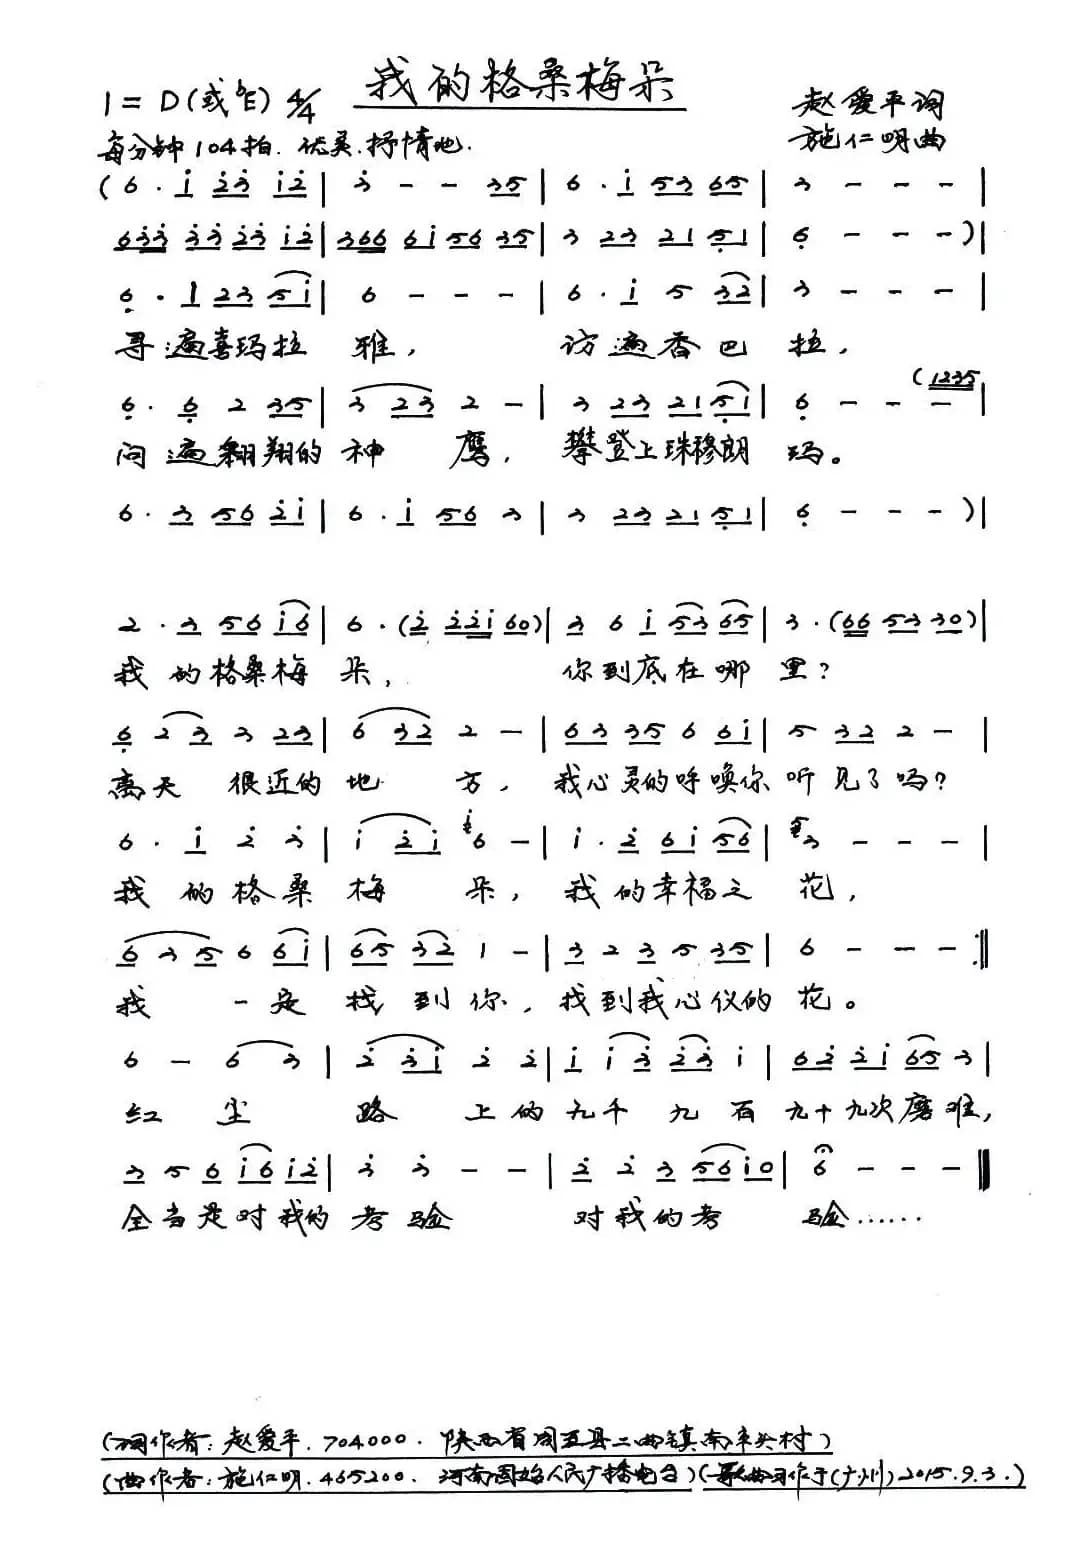 我的格桑梅朵
1=D(或♭E) 4/4 赵爱平词
每分钟104拍. 优美.抒情地. 施仁明曲
(6·i̇ 2̇3̇ i̇2̇ | 3̇ - - 35 | 6·i̇ 53 65 | 3 - - - |
63̇3̇ 3̇3̇ 2̇3̇ i̇2̇ | 366 6i̇ 56 35 | 3 23 21 5̣1 | 6̣ - - - )|
6̣·1 23 5i̇ | 6 - - - | 6·i̇ 5 32 | 3 - - - |
寻遍喜玛拉雅, 访遍香巴拉,
6̣·6̣ 2 35 | 3 23 2 - | 3 23 21 5̣1 | 6̣ - - - (1235 |
问遍翱翔的神鹰, 攀登上珠穆朗玛。
6·3 56 2̇i̇ | 6·i̇ 56 3 | 3 23 21 5̣1 | 6̣ - - - )|
2·3 56 i̇6 | 6·(2̇ 2̇2̇i̇ 60)| 3 6 i̇ 53 65 | 3·(66 53 30)|
我的格桑梅朵, 你到底在哪里?
6̣ 2 3 3 23 | 6 32 2 - | 63 35 6 6i̇ | 5 32 2 - |
离天很近的地方, 我心灵的呼唤你听见了吗?
6·i̇ 2̇ 3̇ | i̇ 2̇i̇ 6 - | i̇·2̇ 6i̇ 56 | 3 - - - |
我的格桑梅朵, 我的幸福之花,
6 3 5 6 6i̇ | 65 32 1 - | 3 2 3 5 35 | 6 - - - :‖
我一定找到你, 找到我心仪的花。
6 - 6 3 | 2̇ 3̇i̇ 2̇ 2̇ | i̇ i̇3̇ 2̇3̇ i | 62̇ 2̇i̇ 65 3 |
红尘路上的九千九百九十九次磨难,
3 5 6 i̇6 i̇2̇ | 3̇ 3̇ - - | 2̇ 2̇ 3 56 i̇0 | 6 - - - ‖
全当是对我的考验 对我的考验……
(词作者:赵爱平.704000. 陕西省周至县二曲镇南辛头村)
(曲作者:施仁明.465200. 河南固始人民广播电台)(歌曲习作于(广州)2015.9.3.)